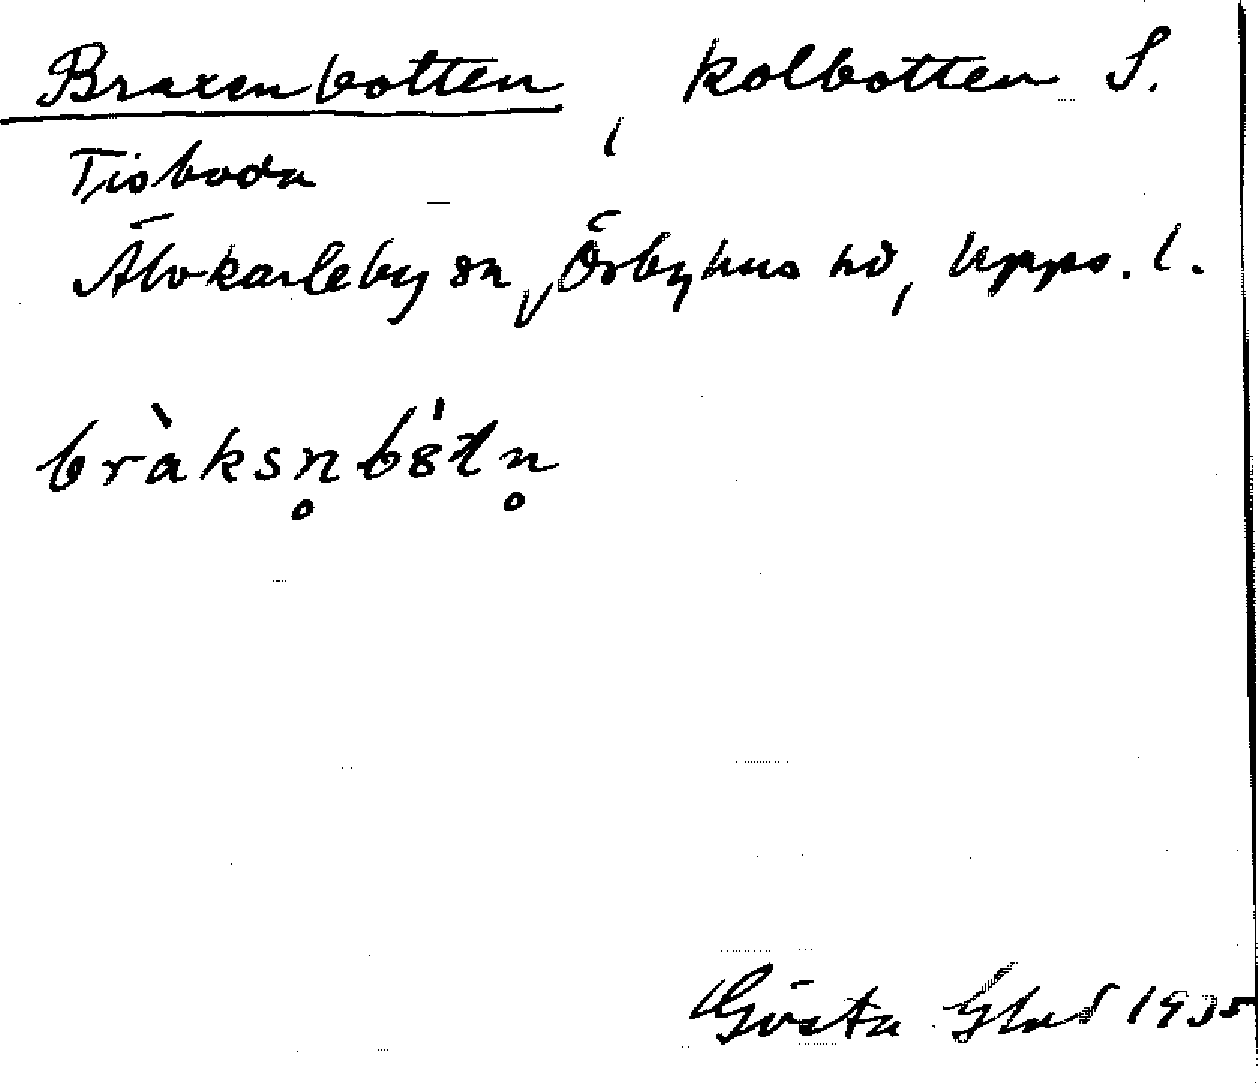 Braxenbotten, kolbotten S.
Tisboda
Älvkarleby sn, Örbyhus hd, Upps. l.
bràksn̥bȣ̍tn̥
Gösta Glad 1935